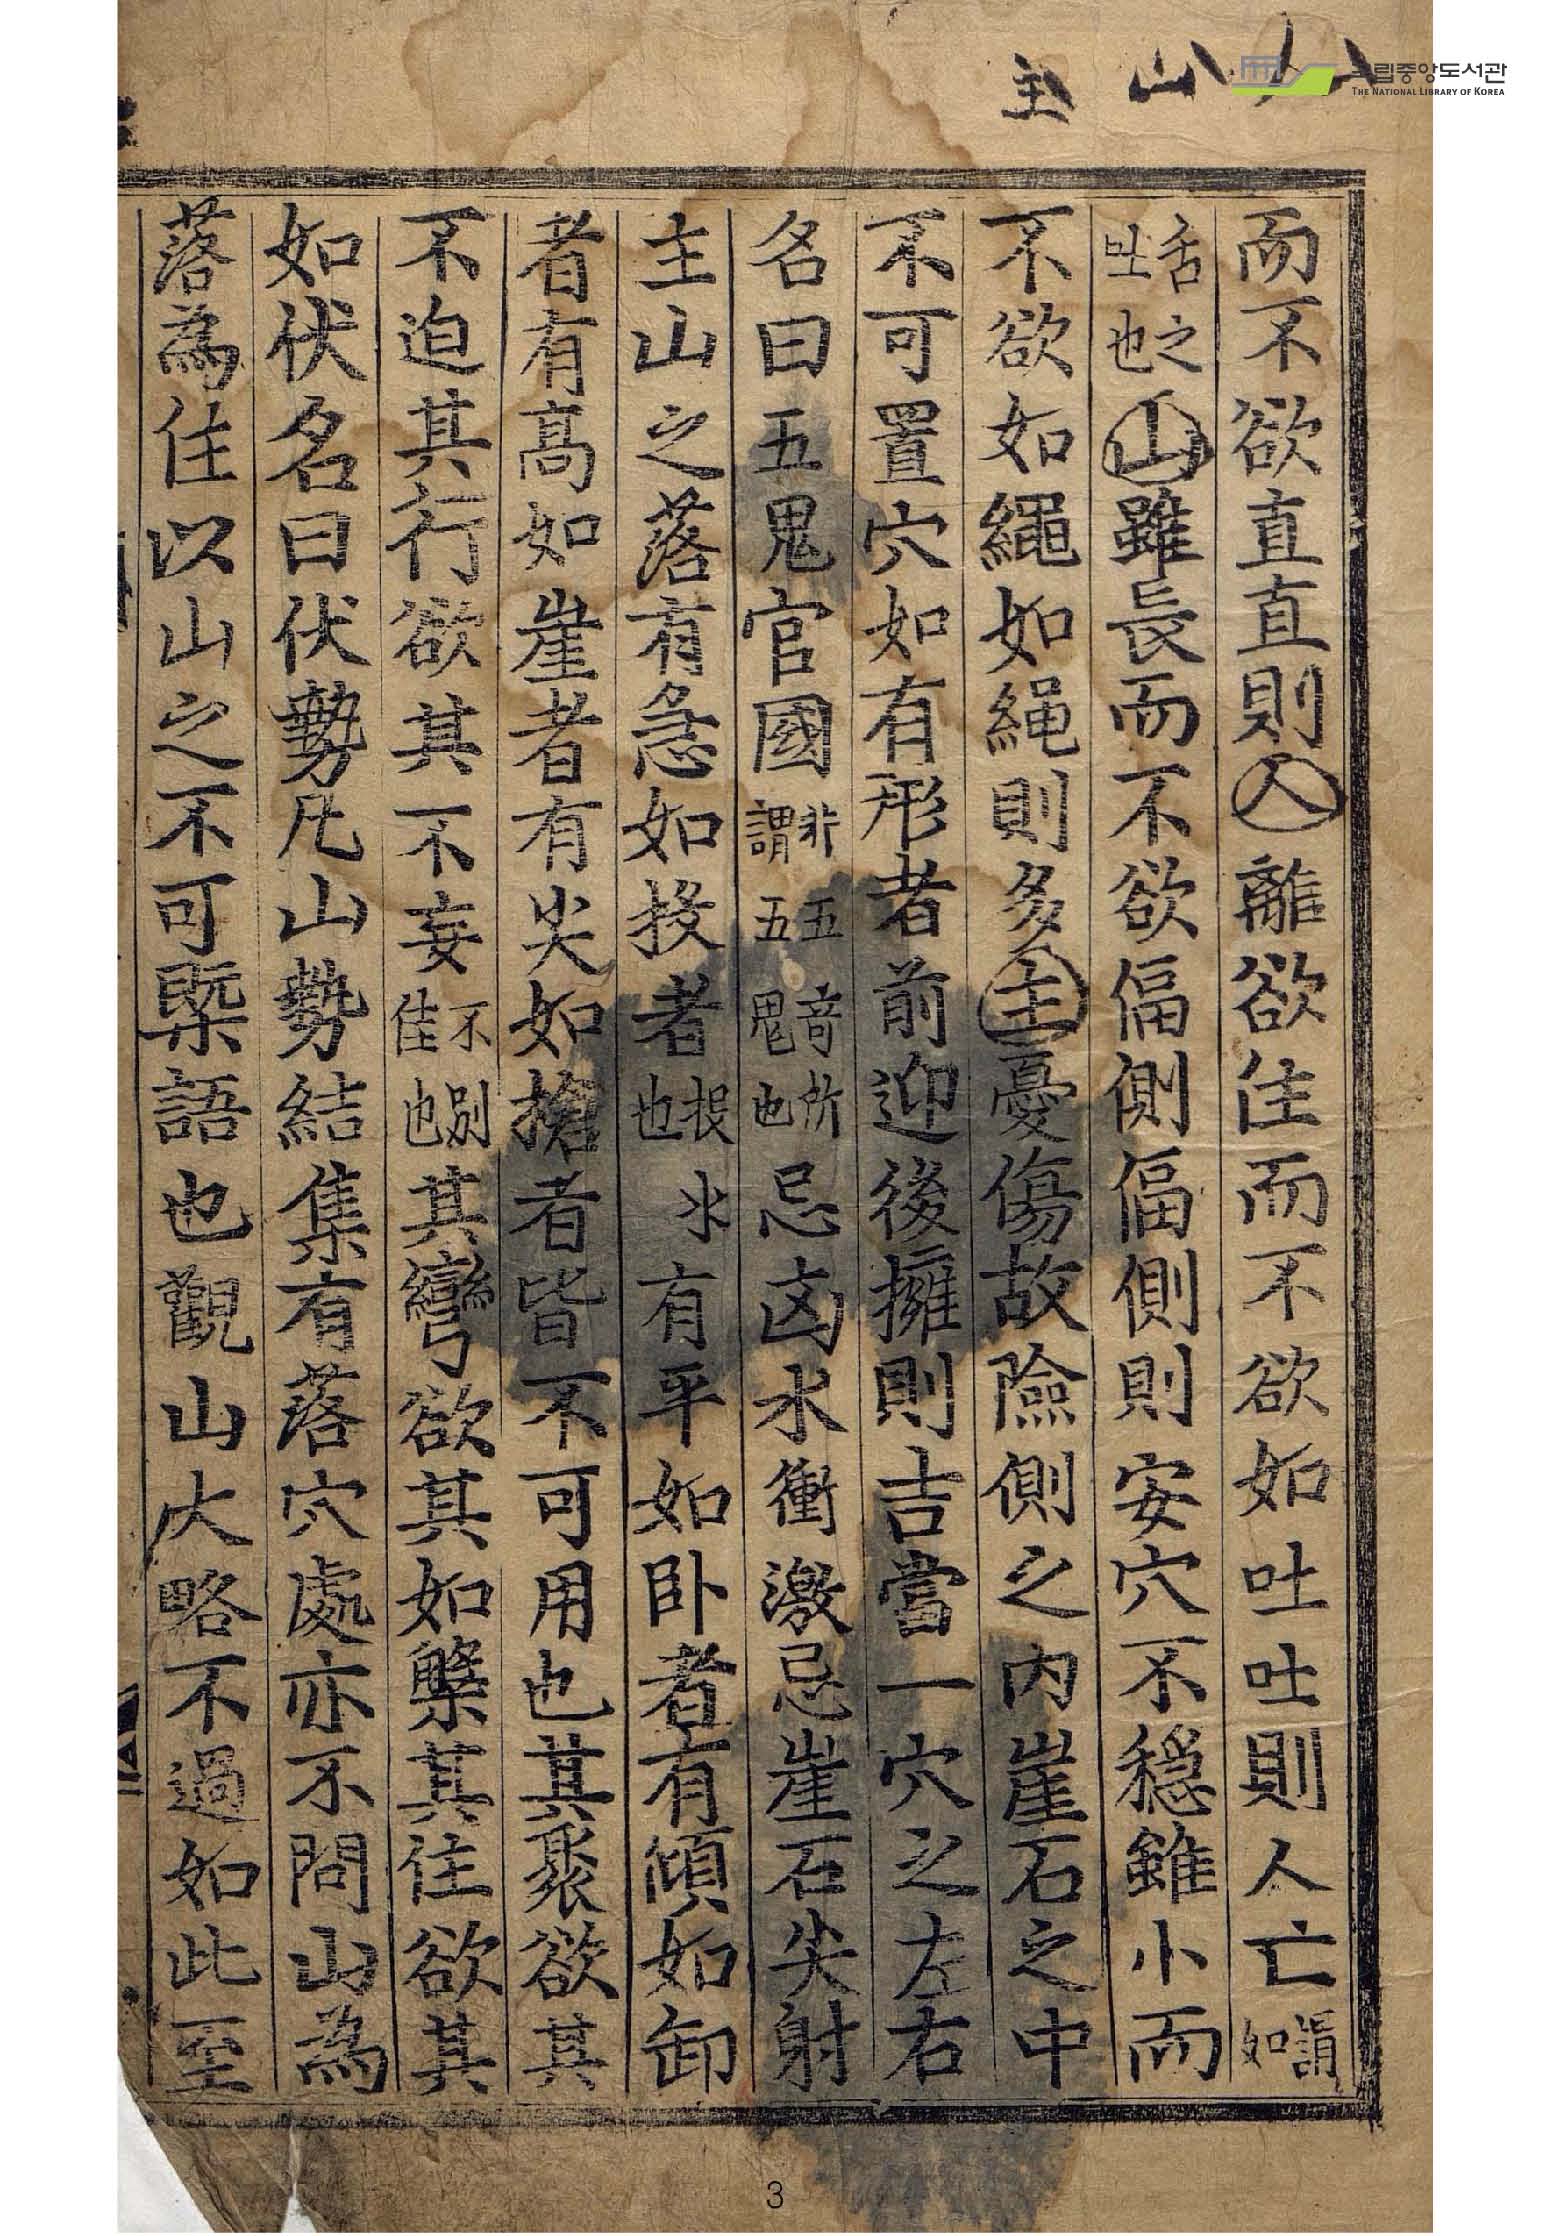 主 山 人
국립중앙도서관
THE NATIONAL LIBRARY OF KOREA
而不欲直直則人離欲佳而不欲如吐吐則人亡謂如
舌之吐也山雖長而不欲偪側偪側則安穴不穩雖小而
不欲如繩如繩則多主憂傷故險側之內崖石之中
不可置穴如有形者前迎後擁則吉當一穴之左右
名曰五鬼官國非謂五音五鬼所也忌凶水衝激忌崖石尖射
主山之落有急如投者投水也有平如卧者有傾如卸
者有高如崖者有尖如搶者皆不可用也其聚欲其
不迫其行欲其不妄不別佳也其彎欲其如槃其住欲其
如伏名曰伏勢凡山勢結集有落穴處亦不問山為
落為住以山之不可槩語也觀山大略不過如此至
3